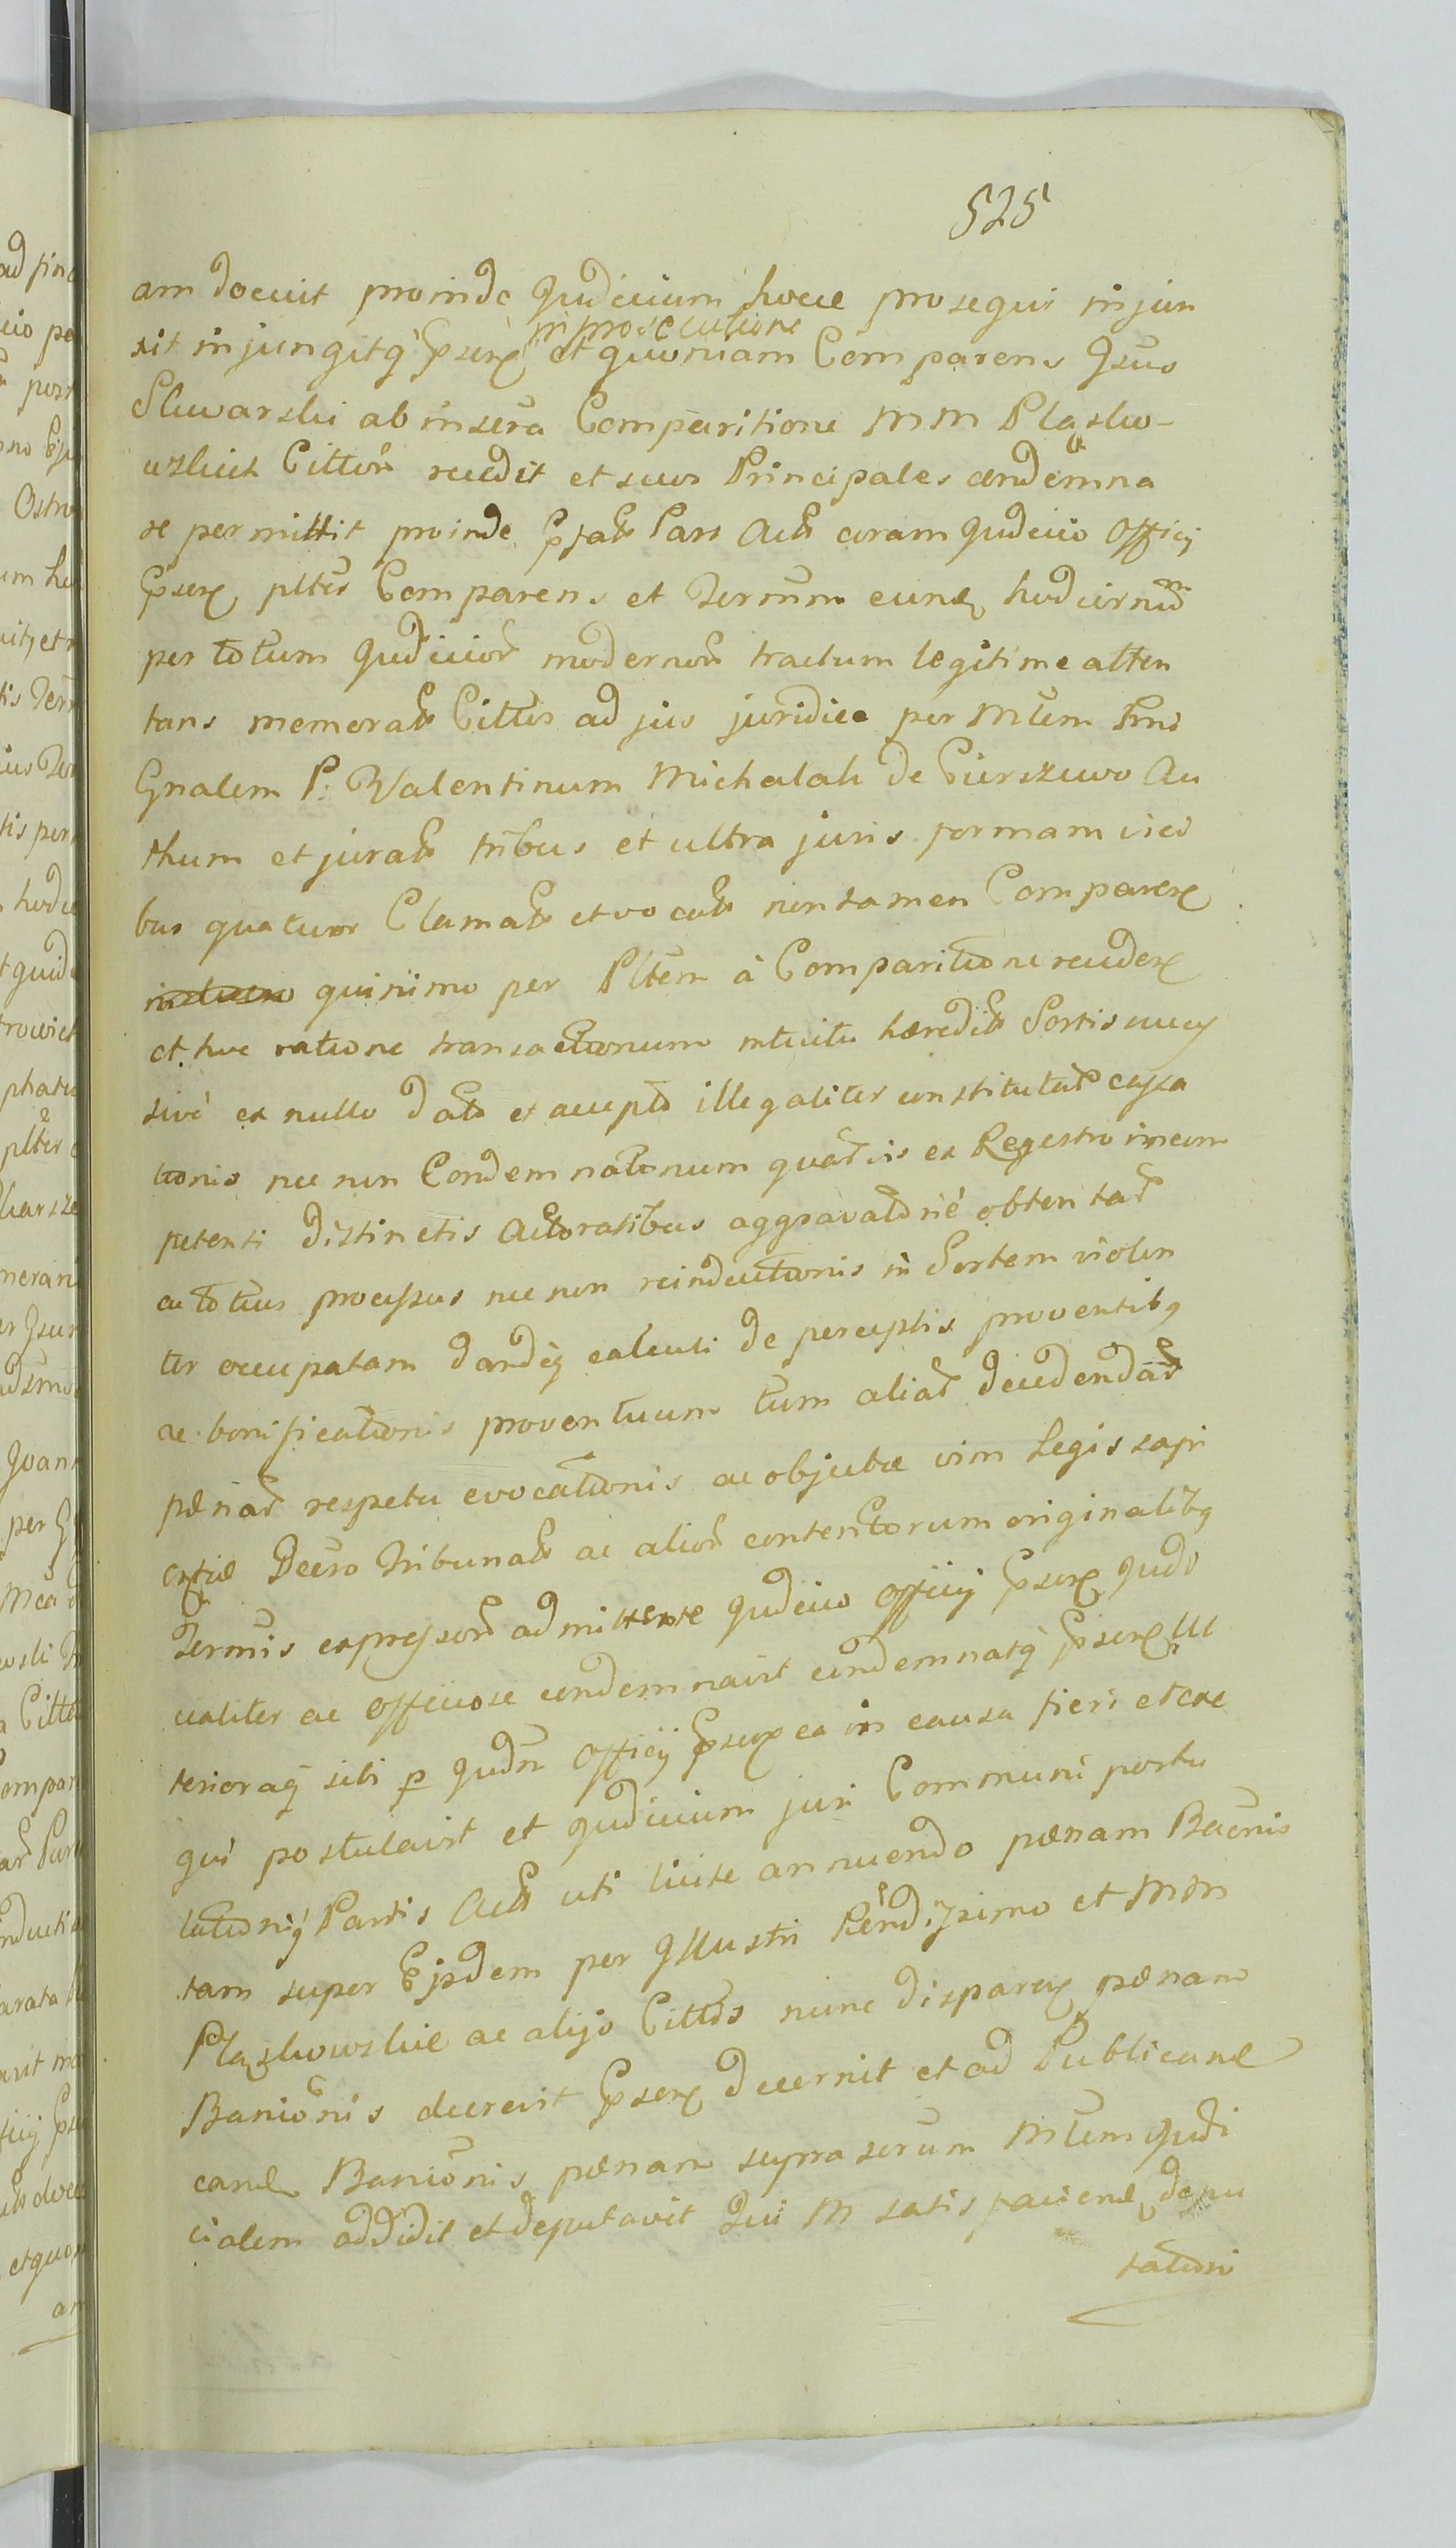 525
am docuit proinde Judicium hocce prosequi injun
xit injungitq́ꝫ Pserꝫ in prosecutione et quoniam Comparens Gsus
Skwarski ab insera Comparitione MM Pląsko-
wskich Cittor̃ recedit et suos Principales condemna
re permittit proinde Pfata Pars Acta coram Judicio Officij
Pserꝫ plter Comparens et Termum eund hodiernũ
per totum Judicior̃ modernor̃ tractum legitime atten
tans memoratos Cittos ad jus juridice per Mlem Rni
Gnalem P: Valentinum Michalak de Cierszewo Au
thum et juratũ tribus et ultra juris formam vici
bus quatuor Clamatos et vocatos non tamen Comparerꝫ
quinimo per Pltem à Comparitione recederꝫ
et hoc ratione transactionum intuitu hæredit Sortis nucy
sivè ex nullo dato et accepto illegaliter constitutar̃ cassa
tionis nec non Condemnationum quarvis ex Regestro incom
petenti distinctis Actoratibus aggravatorie obtentar̃
ac totius processus nec non reinductionis in Sortem violen
ter occupatam dandiq́ꝫ calculi de perceptis proventibꝫ
ac bonificationis proventuum tum aliar̃ decedendar̃
pœnar̃ respectu evocationis ac objectæ vim Legis sapi
entiæ Decro Tribunali ac alior̃ contentorum originalibꝫ
Termis expressor̃ admittente Judicio Officij Pserꝫ Judi
cialiter ac Officiose condemnavit condemnatq́ꝫ Pserꝫ Ul
terioraq́ꝫ sibi p Judm Officij Pserꝫ ea in causa fieri et exe
qui postulavit et Judicium juri Communi postu
lationiq́ꝫ Partis Acta uti licite annuendo pœnam Banis
tam super Ejsdem per Illustri Rendissimo et MM
Pląskowskie ac alijs Cittos nunc disparerꝫ pœnam
Banionis decrevit Pserꝫ decernit et ad Publicand
cand Banionis pœnam supra serum Mlem Judi
cialem addidit et deputavit Qui M satisfaciend depu
tationi